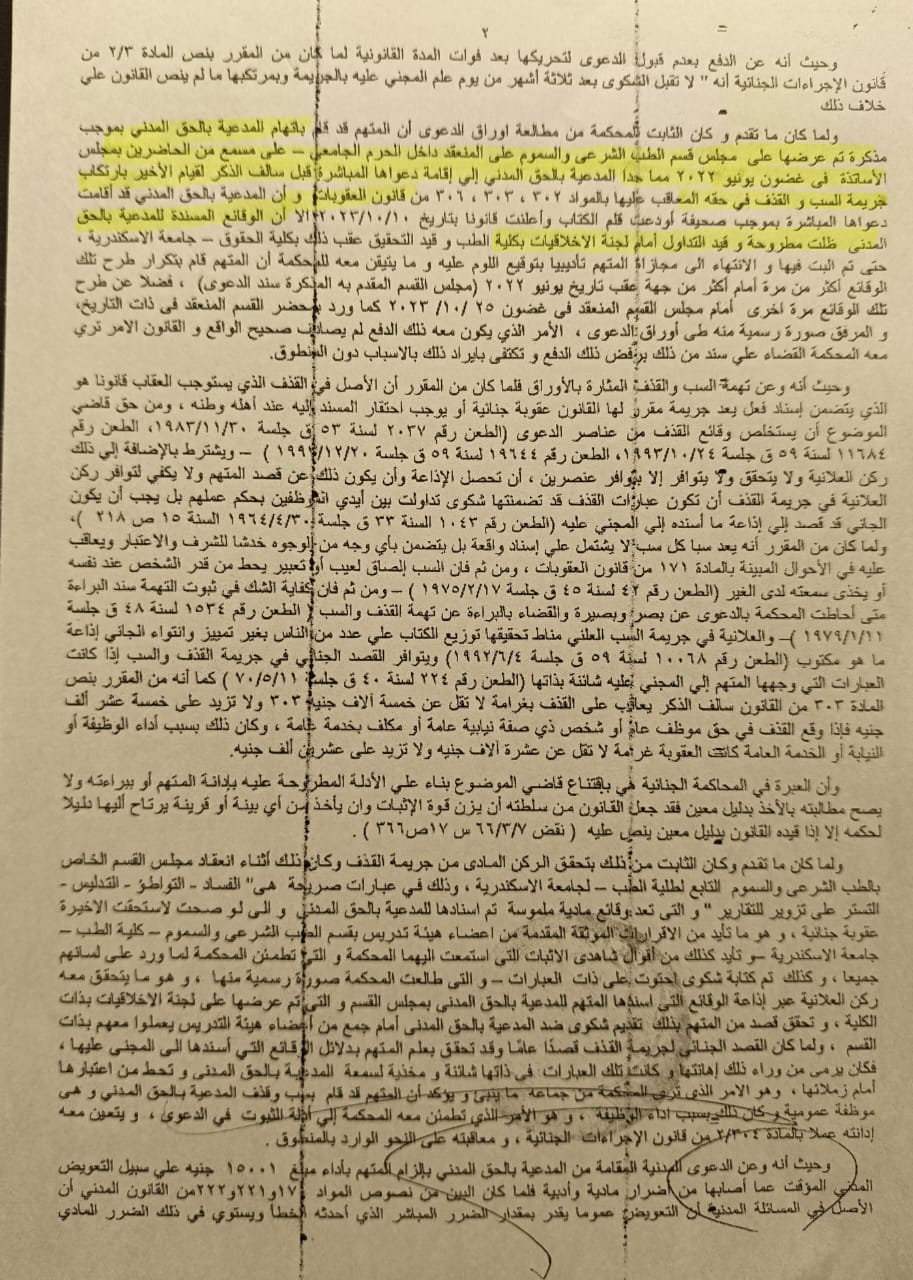 ٢
وحيث أنه عن الدفع بعدم قبول الدعوى لتحريكها بعد فوات المدة القانونية لما كان من المقرر بنص المادة ٢/٣ من
قانون الإجراءات الجنائية أنه " لا تقبل الشكوى بعد ثلاثة أشهر من يوم علم المجني عليه بالجريمة وبمرتكبها ما لم ينص القانون علي
خلاف ذلك
ولما كان ما تقدم و كان الثابت للمحكمة من مطالعة اوراق الدعوى أن المتهم قد قام باتهام المدعية بالحق المدني بموجب
مذكرة تم عرضها على مجلس قسم الطب الشرعى والسموم على المنعقد داخل الحرم الجامعي – على مسمع من الحاضرين بمجلس
الأساتذة فى غضون يونيو ٢٠٢٢ مما حدا المدعية بالحق المدني إلي إقامة دعواها المباشرة قبل سالف الذكر لقيام الأخير بارتكاب
جريمة السب و القذف في حقه المعاقب عليها بالمواد ٣٠٢ ، ٣٠٣ ، ٣٠٦ من قانون العقوبات و أن المدعية بالحق المدني قد أقامت
دعواها المباشرة بموجب صحيفة أودعت قلم الكتاب وأعلنت قانونا بتاريخ ٢٠٢٣/١٠/١٠ الا أن الوقائع المسندة للمدعية بالحق
المدنى ظلت مطروحة و قيد التداول أمام لجنة الاخلاقيات بكلية الطب و قيد التحقيق عقب ذلك بكلية الحقوق – جامعة الاسكندرية ،
حتى تم البت فيها و الانتهاء الى مجازاة المتهم تأديبيا بتوقيع اللوم عليه و ما يتيقن معه للمحكمة أن المتهم قام بتكرار طرح تلك
الوقائع أكثر من مرة أمام أكثر من جهة عقب تاريخ يونيو ٢٠٢٢ (مجلس القسم المقدم به المذكرة سند الدعوى) ، فضلا عن طرح
تلك الوقائع مرة اخرى أمام مجلس القسم المنعقد في غضون ٢٥ /١٠/ ٢٠٢٣ كما ورد بمحضر القسم المنعقد فى ذات التاريخ،
و المرفق صورة رسمية منه طى أوراق الدعوى ، الأمر الذي يكون معه ذلك الدفع لم يصادف صحيح الواقع و القانون الامر تري
معه المحكمة القضاء علي سند من ذلك برفض ذلك الدفع و تكتفى بايراد ذلك بالاسباب دون المنطوق.
وحيث أنه وعن تهمة السب والقذف المثارة بالأوراق فلما كان من المقرر أن الأصل في القذف الذي يستوجب العقاب قانونا هو
الذي يتضمن إسناد فعل يعد جريمة مقرر لها القانون عقوبة جنائية أو يوجب احتقار المسند إليه عند أهله وطنه ، ومن حق قاضي
الموضوع أن يستخلص وقائع القذف من عناصر الدعوى (الطعن رقم ٢٠٣٧ لسنة ٥٣ ق جلسة ١٩٨٣/١١/٣٠، الطعن رقم
١١٦٨٤ لسنة ٥٩ ق جلسة ١٩٩٣/١٠/٢٤، الطعن رقم ١٩٦٤٤ لسنة ٥٩ ق جلسة ١٢/٢٠/ ) – ويشترط بالإضافة إلي ذلك
ركن العلانية ولا يتحقق ولا يتوافر إلا بتوافر عنصرين ، أن تحصل الإذاعة وأن يكون ذلك عن قصد المتهم ولا يكفي لتوافر ركن
العلانية في جريمة القذف أن تكون عبارات القذف قد تضمنتها شكوى تداولت بين أيدي الموظفين بحكم عملهم بل يجب أن يكون
الجاني قد قصد إلي إذاعة ما أسنده إلي المجني عليه (الطعن رقم ١٠٤٣ السنة ٣٣ ق جلسة ١٩٦٤/٤/٣٠ السنة ١٥ ص ٢١٨ )،
ولما كان من المقرر أنه يعد سبا كل سب لا يشتمل علي إسناد واقعة بل يتضمن بأي وجه من الوجوه خدشا للشرف والاعتبار ويعاقب
عليه في الأحوال المبينة بالمادة ١٧١ من قانون العقوبات ، ومن ثم فان السب إلصاق لعيب أو تعبير يحط من قدر الشخص عند نفسه
أو يخذى سمعته لدى الغير (الطعن رقم ٤٢ لسنة ٤٥ ق جلسة ١٩٧٥/٢/١٧ ) – ومن ثم فان كفاية الشك في ثبوت التهمة سند البراءة
متى أحاطت المحكمة بالدعوى عن بصر وبصيرة والقضاء بالبراءة عن تهمة القذف والسب ( الطعن رقم ١٥٣٤ لسنة ٤٨ ق جلسة
١٩٧٩/١/١١ )– والعلانية في جريمة السب العلني مناط تحقيقها توزيع الكتاب علي عدد من الناس بغير تمييز وانتواء الجاني إذاعة
ما هو مكتوب (الطعن رقم ١٠٠٦٨ لسنة ٥٩ ق جلسة ١٩٩٢/٦/٤) ويتوافر القصد الجنائي في جريمة القذف والسب إذا كانت
العبارات التي وجهها المتهم إلي المجني عليه شائنة بذاتها (الطعن رقم ٢٢٤ لسنة ٤٠ ق جلسة ٧٠/٥/١١ ) كما أنه من المقرر بنص
المادة ٣٠٣ من القانون سالف الذكر يعاقب على القذف بغرامة لا تقل عن خمسة آلاف جنيه ٣٠٣ ولا تزيد على خمسة عشر ألف
جنيه فإذا وقع القذف في حق موظف عام أو شخص ذي صفة نيابية عامة أو مكلف بخدمة عامة ، وكان ذلك بسبب أداء الوظيفة أو
النيابة أو الخدمة العامة كانت العقوبة غرامة لا تقل عن عشرة آلاف جنيه ولا تزيد على عشرين ألف جنيه.
وأن العبرة في المحاكمة الجنائية هي بإقتناع قاضي الموضوع بناء علي الأدلة المطروحة عليه بإدانة المتهم أو ببراءته ولا
يصح مطالبته بالأخذ بدليل معين فقد جعل القانون من سلطته أن يزن قوة الإثبات وان يأخذ من أي بينة أو قرينة يرتاح أليها دليلا
لحكمه إلا إذا قيده القانون بدليل معين ينص عليه ( نقض ٦٦/٣/٧ س ١٧ص٣٦٦ ) .
ولما كان ما تقدم وكان الثابت من ذلك بتحقق الركن المادى من جريمة القذف وكان ذلك أثناء انعقاد مجلس القسم الخاص
بالطب الشرعى والسموم التابع لطلبة الطب – لجامعة الاسكندرية ، وذلك في عبارات صريحة هى" الفساد - التواطؤ - التدليس -
التستر على تزوير للتقارير " و التى تعد وقائع مادية ملموسة تم اسنادها للمدعية بالحق المدنى و الى لو صحت لاستحقت الاخيرة
عقوبة جنائية ، و هو ما تأيد من الاقرارات الموثقة المقدمة من اعضاء هيئة تدريس بقسم الطب الشرعى والسموم – كلية الطب –
جامعة الاسكندرية –و تأيد كذلك من أقوال شاهدى الاثبات التى استمعت اليهما المحكمة و التى تطمئن المحكمة لما ورد على لسانهم
جميعا ، و كذلك تم كتابة شكوى احتوت على ذات العبارات – و التى طالعت المحكمة صورة رسمية منها ، و هو ما يتحقق معه
ركن العلانية عبر إذاعة الوقائع التى اسندها المتهم للمدعية بالحق المدنى بمجلس القسم و التى تم عرضها على لجنة الاخلاقيات بذات
الكلية ، و تحقق قصد من المتهم بذلك تقديم شكوى ضد المدعية بالحق المدنى أمام جمع من أعضاء هيئة التدريس يعملوا معهم بذات
القسم ، ولما كان القصد الجنائي لجريمة القذف قصدًا عامًا وقد تحقق بعلم المتهم بدلائل الوقائع التي أسندها الى المجنى عليها ،
فكان يرمى من وراء ذلك إهانتها و كانت تلك العبارات فى ذاتها شائنة و مخذية لسمعة المدعية بالحق المدنى و تحط من اعتبارها
أمام زملائها ، وهو الامر الذى ترى المحكمة من جماعه ما ينبئ و يؤكد أن المتهم قد قام بسب وقذف المدعية بالحق المدني و هى
موظفة عمومية و كان ذلك بسبب اداء الوظيفة ، و هو الأمر الذي تطمئن معه المحكمة إلي أدلة الثبوت في الدعوى ، و يتعين معه
إدانته عملا بالمادة ٢/٣٠٤ من قانون الإجراءات الجنائية ، و معاقبته على النحو الوارد بالمنطوق .
وحيث أنه وعن الدعوى المدنية المقامة من المدعية بالحق المدني بإلزام المتهم بأداء مبلغ ١٥٠٠١ جنيه علي سبيل التعويض
المدني المؤقت عما أصابها من أضرار مادية وأدبية فلما كان البين من نصوص المواد ١٧٠و٢٢١و٢٢٢من القانون المدني أن
الأصل في المسائلة المدنية أن التعويض عموما يقدر بمقدار الضرر المباشر الذي أحدثه الخطأ ويستوي في ذلك الضرر المادي